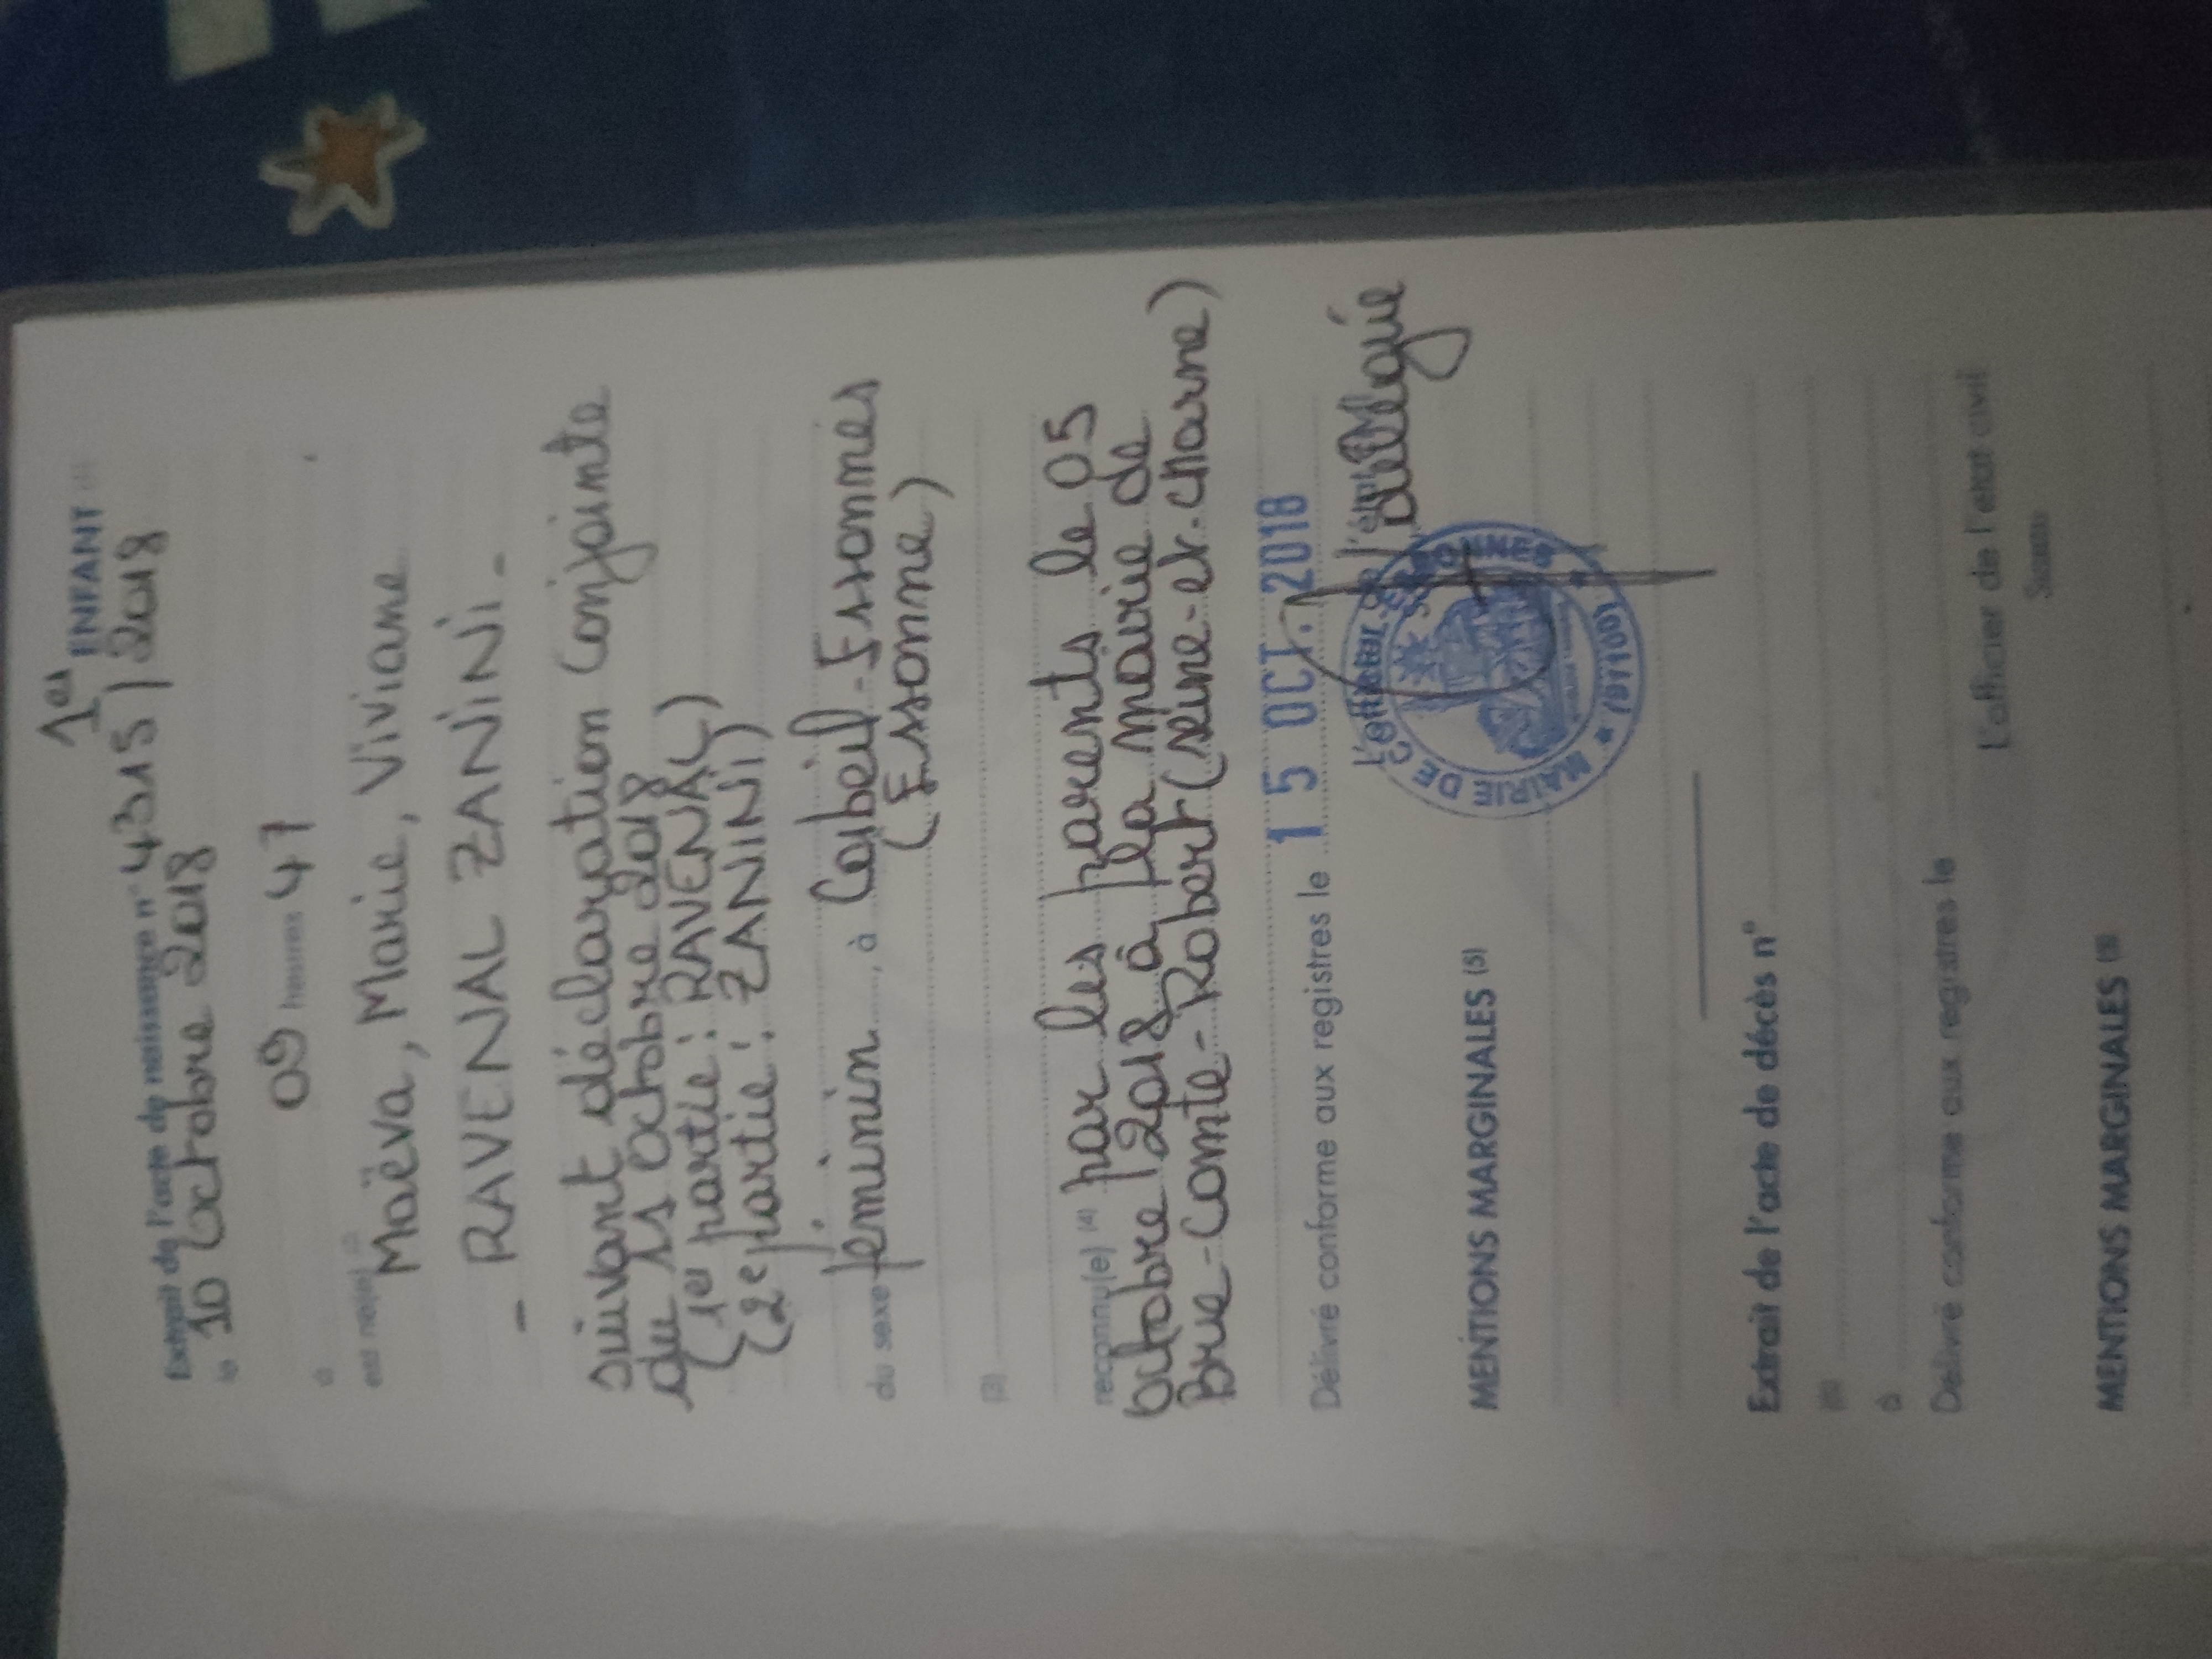 1er
ENFANT
Extrait de l'acte de naissance n° 4315/2018
le 10 octobre 2018
à 09 heures 47
est né(e)
Maëva, Marie, Viviane
- RAVENAL ZANINI -
suivant déclaration conjointe
du 15 octobre 2018
(1er partie : RAVENAL)
(2e partie : ZANINI)
du sexe féminin, à Corbeil-Essonnes
(Essonne)
(3)
reconnu(e) (4) par les parents le 05
octobre 2018 à la mairie de
Brie-Comte-Robert (Seine-et-Marne)
Délivré conforme aux registres le 15 OCT. 2018
L'officier de l'état
délégué
MAIRIE DE CORBEIL-ESSONNES (91100)
MENTIONS MARGINALES (5)
Extrait de l'acte de décès n°
à
Délivré conforme aux registres le
L'officier de l'état civil
Sceau
MENTIONS MARGINALES (5)